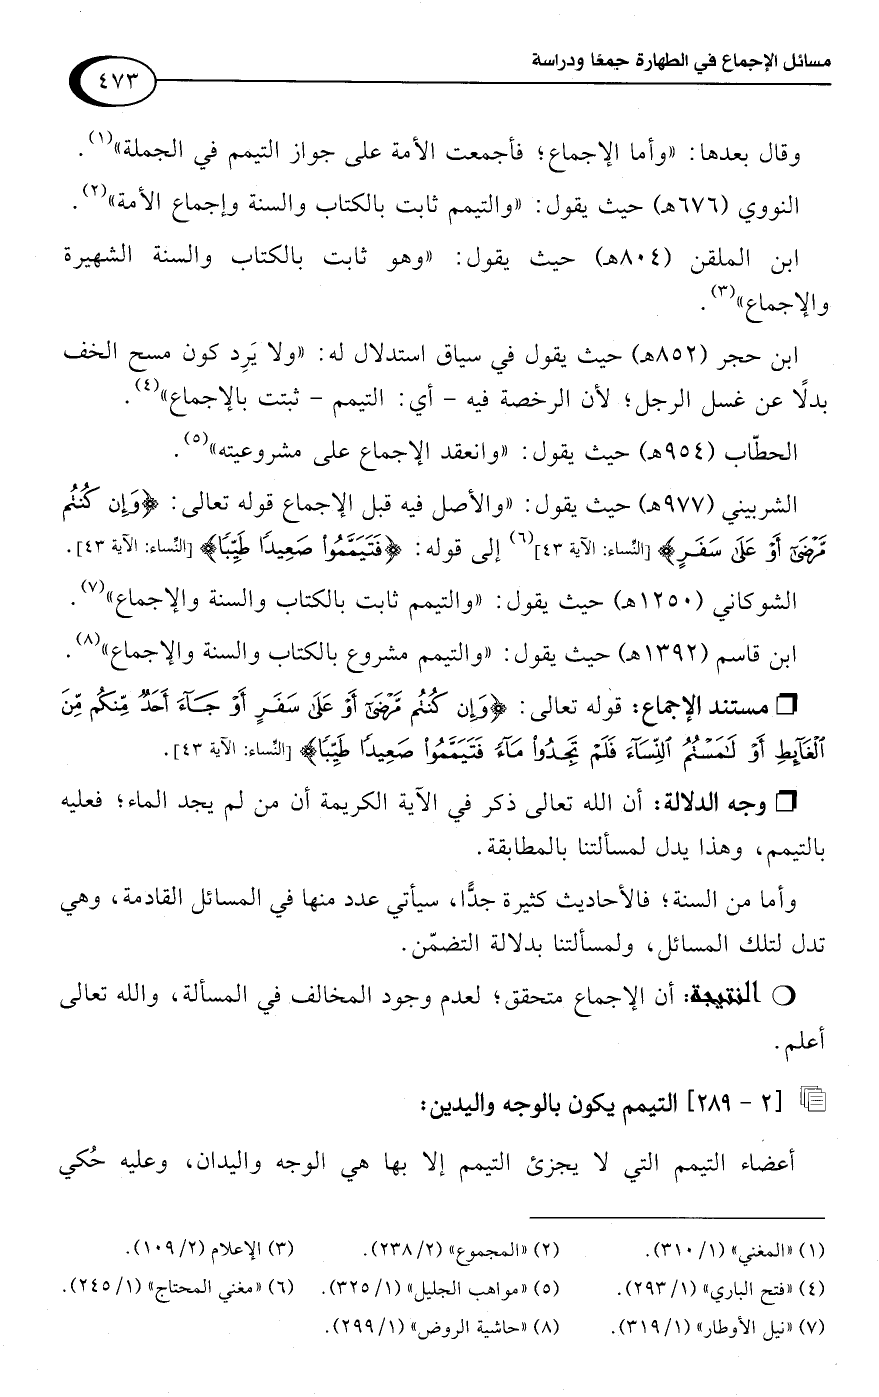 مسائل الإجماع في الطهارة جمعًا ودراسة
٤٧٣
وقال بعدها: «وأما الإجماع؛ فأجمعت الأمة على جواز التيمم في الجملة»(١).
النووي (٦٧٦هـ) حيث يقول: «والتيمم ثابت بالكتاب والسنة وإجماع الأمة»(٢).
ابن الملقن (٨٠٤هـ) حيث يقول: «وهو ثابت بالكتاب والسنة الشهيرة
والإجماع»(٣).
ابن حجر (٨٥٢هـ) حيث يقول في سياق استدلال له: «ولا يَرِد كون مسح الخف
بدلًا عن غسل الرجل؛ لأن الرخصة فيه - أي: التيمم - ثبتت بالإجماع»(٤).
الحطّاب (٩٥٤هـ) حيث يقول: «وانعقد الإجماع على مشروعيته»(٥).
الشربيني (٩٧٧هـ) حيث يقول: «والأصل فيه قبل الإجماع قوله تعالى: ﴿وَإِن كُنتُم
مَّرْضَىٰٓ أَوْ عَلَىٰ سَفَرٍ﴾ [النِّساء: الآية ٤٣](٦) إلى قوله: ﴿فَتَيَمَّمُوا۟ صَعِيدًا طَيِّبًا﴾ [النِّساء: الآية ٤٣].
الشوكاني (١٢٥٠هـ) حيث يقول: «والتيمم ثابت بالكتاب والسنة والإجماع»(٧).
ابن قاسم (١٣٩٢هـ) حيث يقول: «والتيمم مشروع بالكتاب والسنة والإجماع»(٨).
❒ مستند الإجماع: قوله تعالى: ﴿وَإِن كُنتُم مَّرْضَىٰٓ أَوْ عَلَىٰ سَفَرٍ أَوْ جَآءَ أَحَدٌ مِّنكُم مِّنَ
ٱلْغَآئِطِ أَوْ لَٰمَسْتُمُ ٱلنِّسَآءَ فَلَمْ تَجِدُوا۟ مَآءً فَتَيَمَّمُوا۟ صَعِيدًا طَيِّبًا﴾ [النِّساء: الآية ٤٣].
❒ وجه الدلالة: أن الله تعالى ذكر في الآية الكريمة أن من لم يجد الماء؛ فعليه
بالتيمم، وهذا يدل لمسألتنا بالمطابقة.
وأما من السنة؛ فالأحاديث كثيرة جدًّا، سيأتي عدد منها في المسائل القادمة، وهي
تدل لتلك المسائل، ولمسألتنا بدلالة التضمّن.
❍ النتيجة: أن الإجماع متحقق؛ لعدم وجود المخالف في المسألة، والله تعالى
أعلم.
[٢ - ٢٨٩] التيمم يكون بالوجه واليدين:
أعضاء التيمم التي لا يجزئ التيمم إلا بها هي الوجه واليدان، وعليه حُكي
(١) «المغني» (٣١٠/١). (٢) «المجموع» (٢٣٨/٢). (٣) الإعلام (١٠٩/٢).
(٤) «فتح الباري» (٢٩٣/١). (٥) «مواهب الجليل» (٣٢٥/١). (٦) «مغني المحتاج» (٢٤٥/١).
(٧) «نيل الأوطار» (٣١٩/١). (٨) «حاشية الروض» (٢٩٩/١).